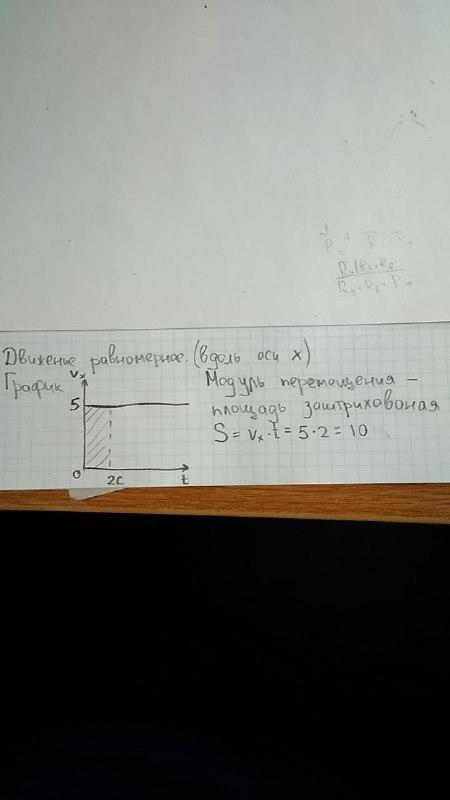 Движение равномерное. (вдоль оси x)
График
Vx
5
0
2с
t
Модуль перемещения –
площадь заштрихованая
S = Vx · t = 5 · 2 = 10